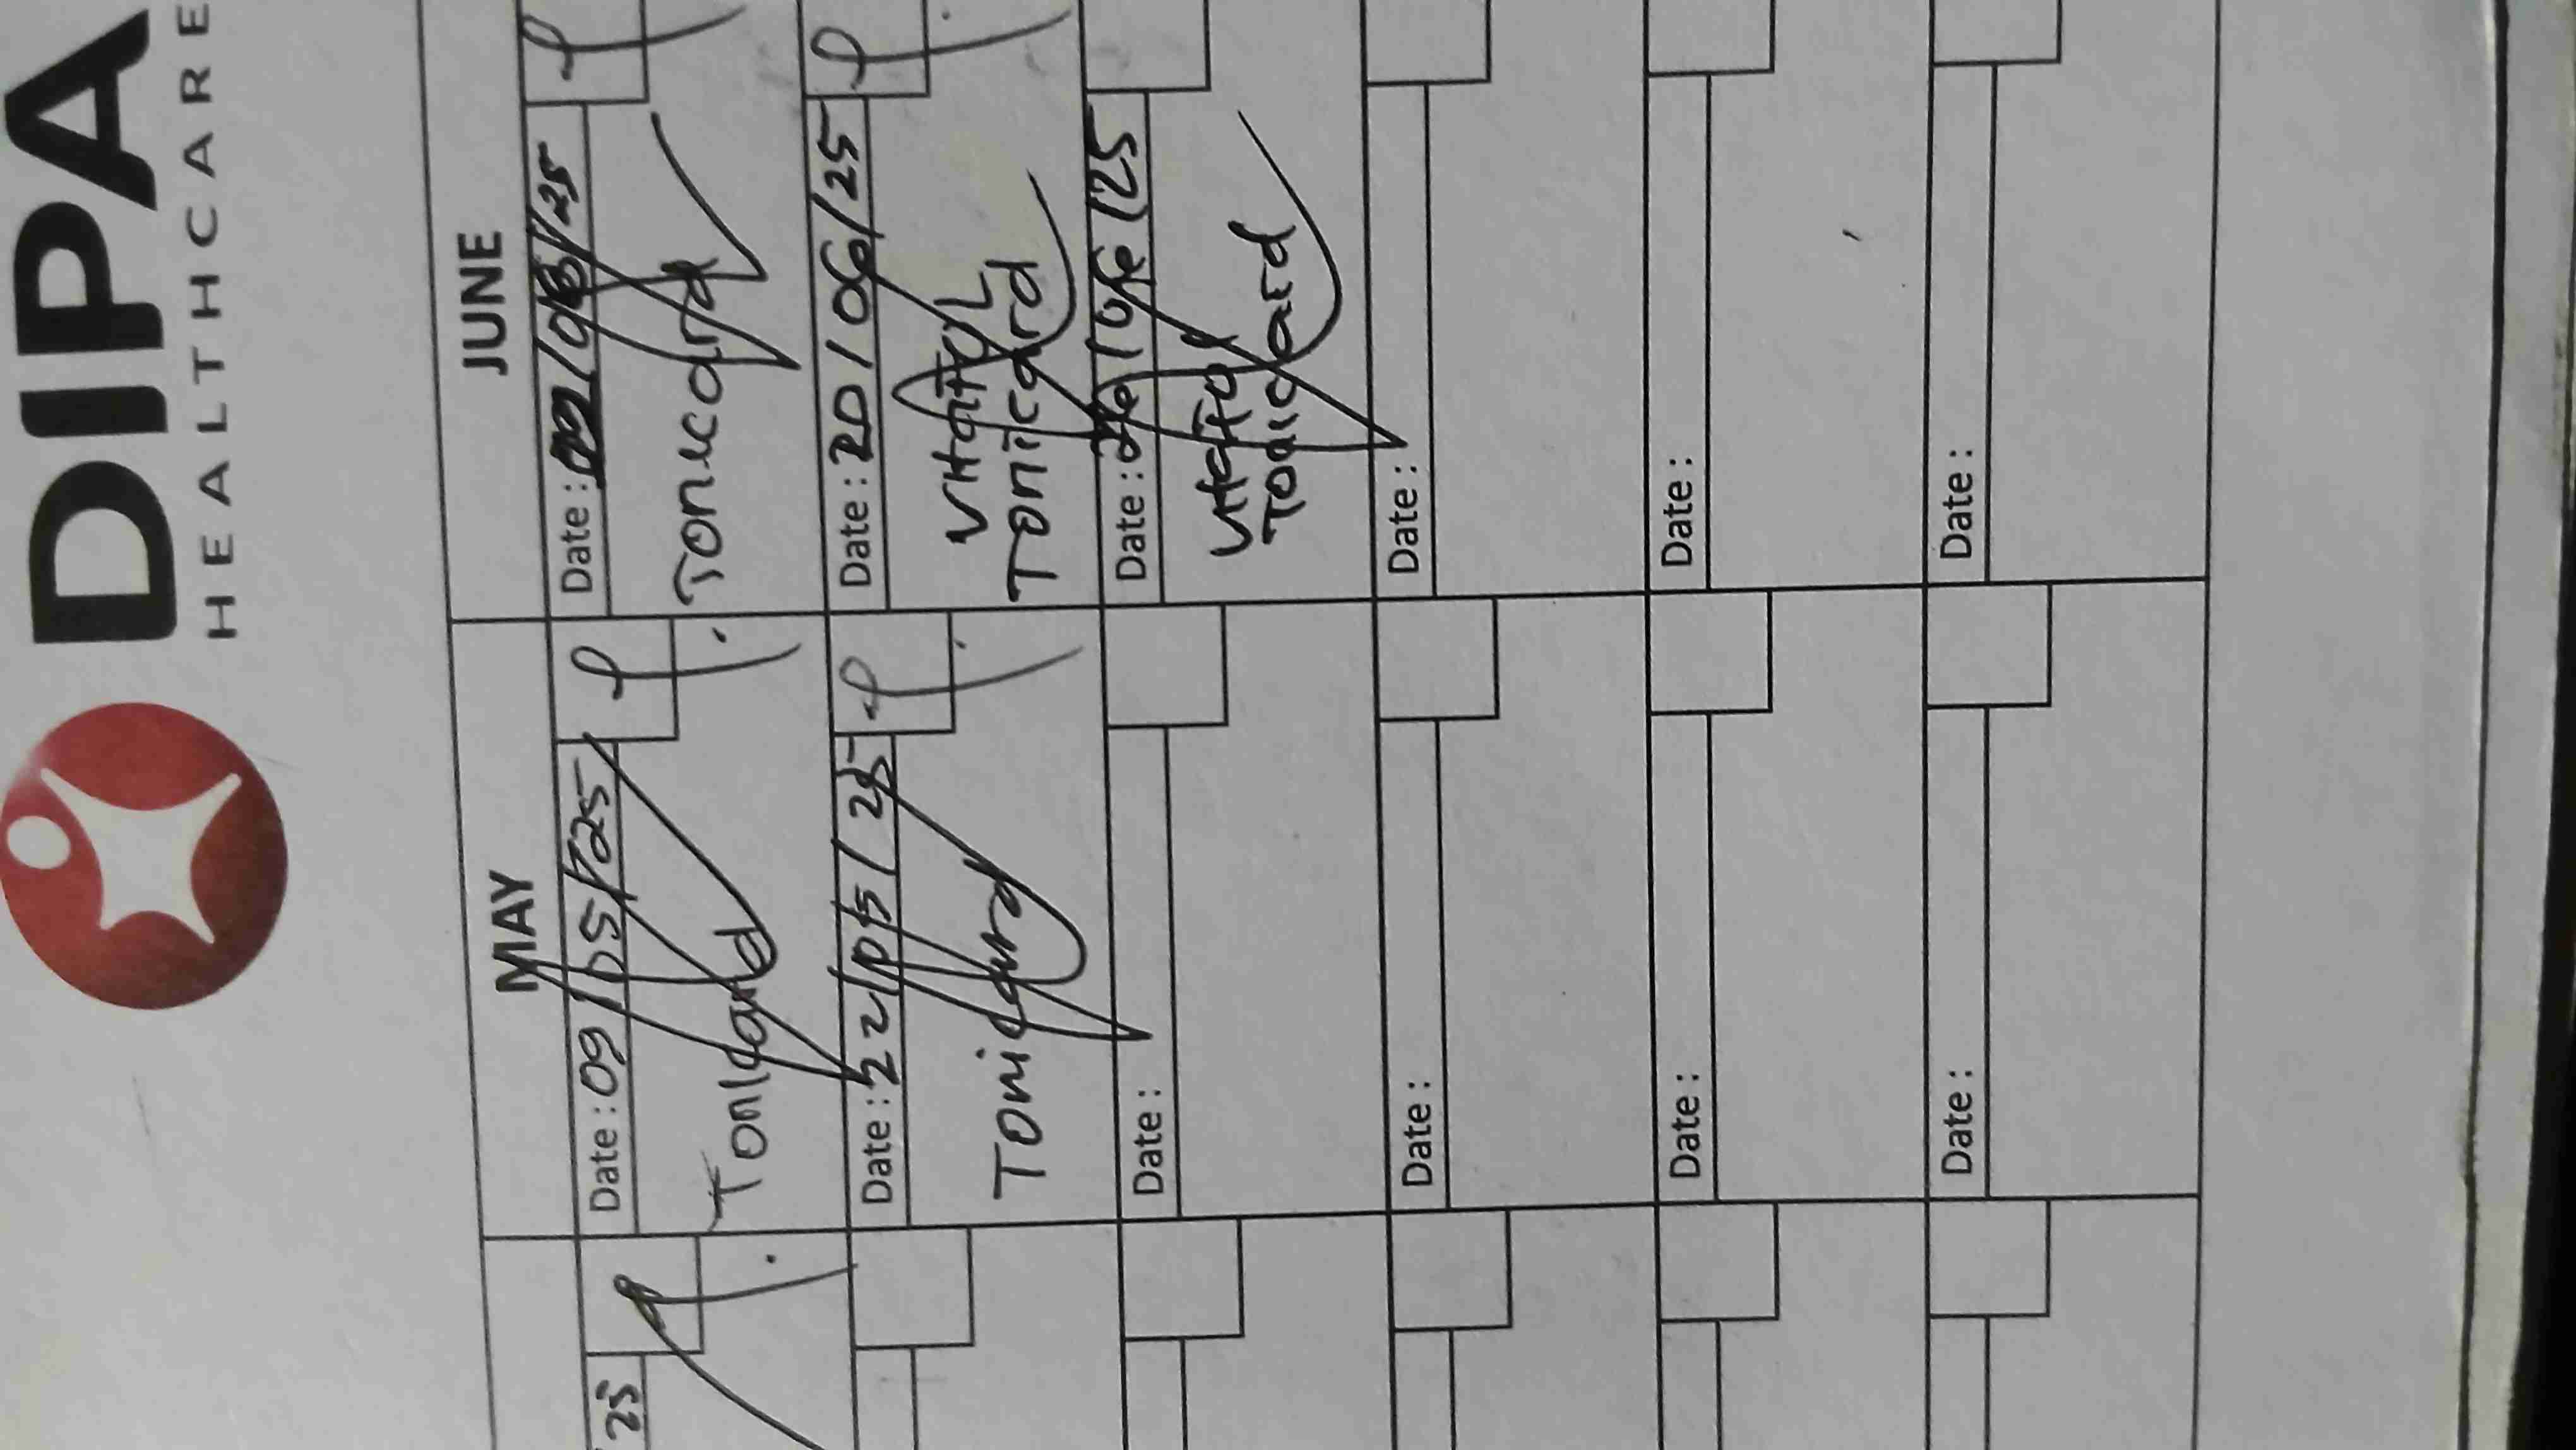 DIPA
HEALTHCARE
MAY
JUNE
25
Date : 09/05/25
Tonicard
Date : 22/05/25
Tonicard
Date :
Date :
Date :
Date :
Date : 09/06/25
Tonicard
Date : 20/06/25
Tonicard
Date : /06/25
Tonicard
Date :
Date :
Date :